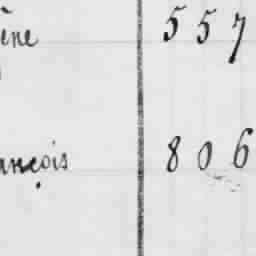 ène 557
ançois 806